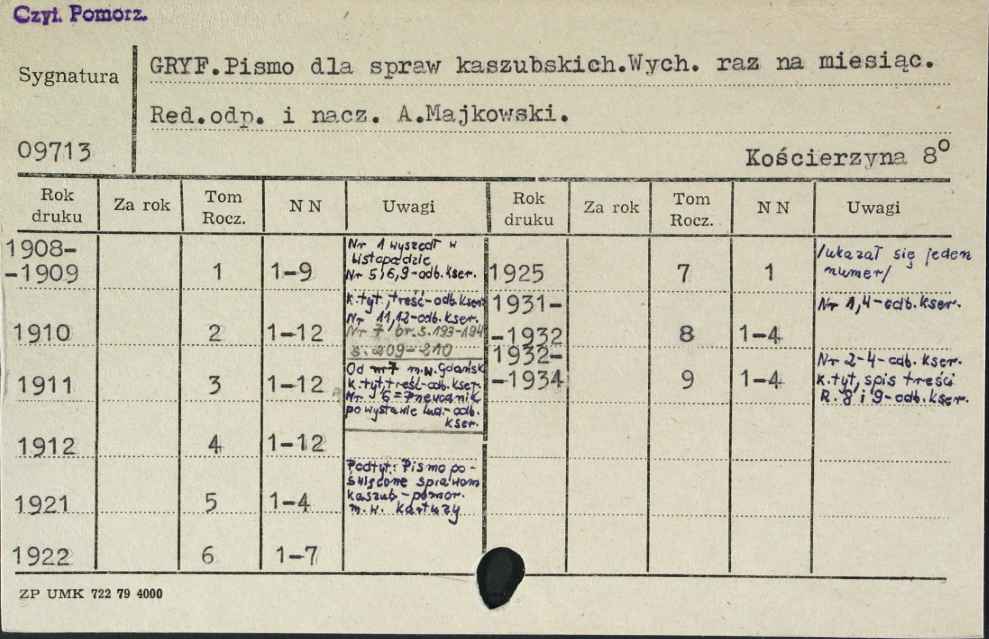 Czyt. Pomorz.
Sygnatura
GRYF.Pismo dla spraw kaszubskich.Wych. raz na miesiąc.
Red.odp. i nacz. A.Majkowski.
09713
Kościerzyna 8°
Rok druku Za rok Tom Rocz. NN Uwagi Rok druku Za rok Tom Rocz. NN Uwagi
1908-
-1909 1 1-9
Nr 1 wyszedł w
listopadzie
Nr 5i6,9-odb.kser.
1925 7 1
/ukazał się jeden
numer/
1910 2 1-12
K.tyt, treść-odb.kser
Nr 11,12-odb.kser.
Nr 7 br.s.193-194
s. 209-210
1931-
-1932 8 1-4
Nr 1,4-odb.kser.
1911 3 1-12
Od nr 7 m.w.Gdańsk
K.tyt, treść-odb.kser.
Nr 6=Przewodnik
po wystawie lud.-odb.
kser.
1932-
-1934 9 1-4
Nr 2-4-odb.kser.
K.tyt, spis treści
R. 8 i 9-odb.kser.
1912 4 1-12
1921 5 1-4
Podtyt.: Pismo po-
święcone sprawom
kaszub.-pomor.
m.w. Kartuzy
1922 6 1-7
ZP UMK 722 79 4000